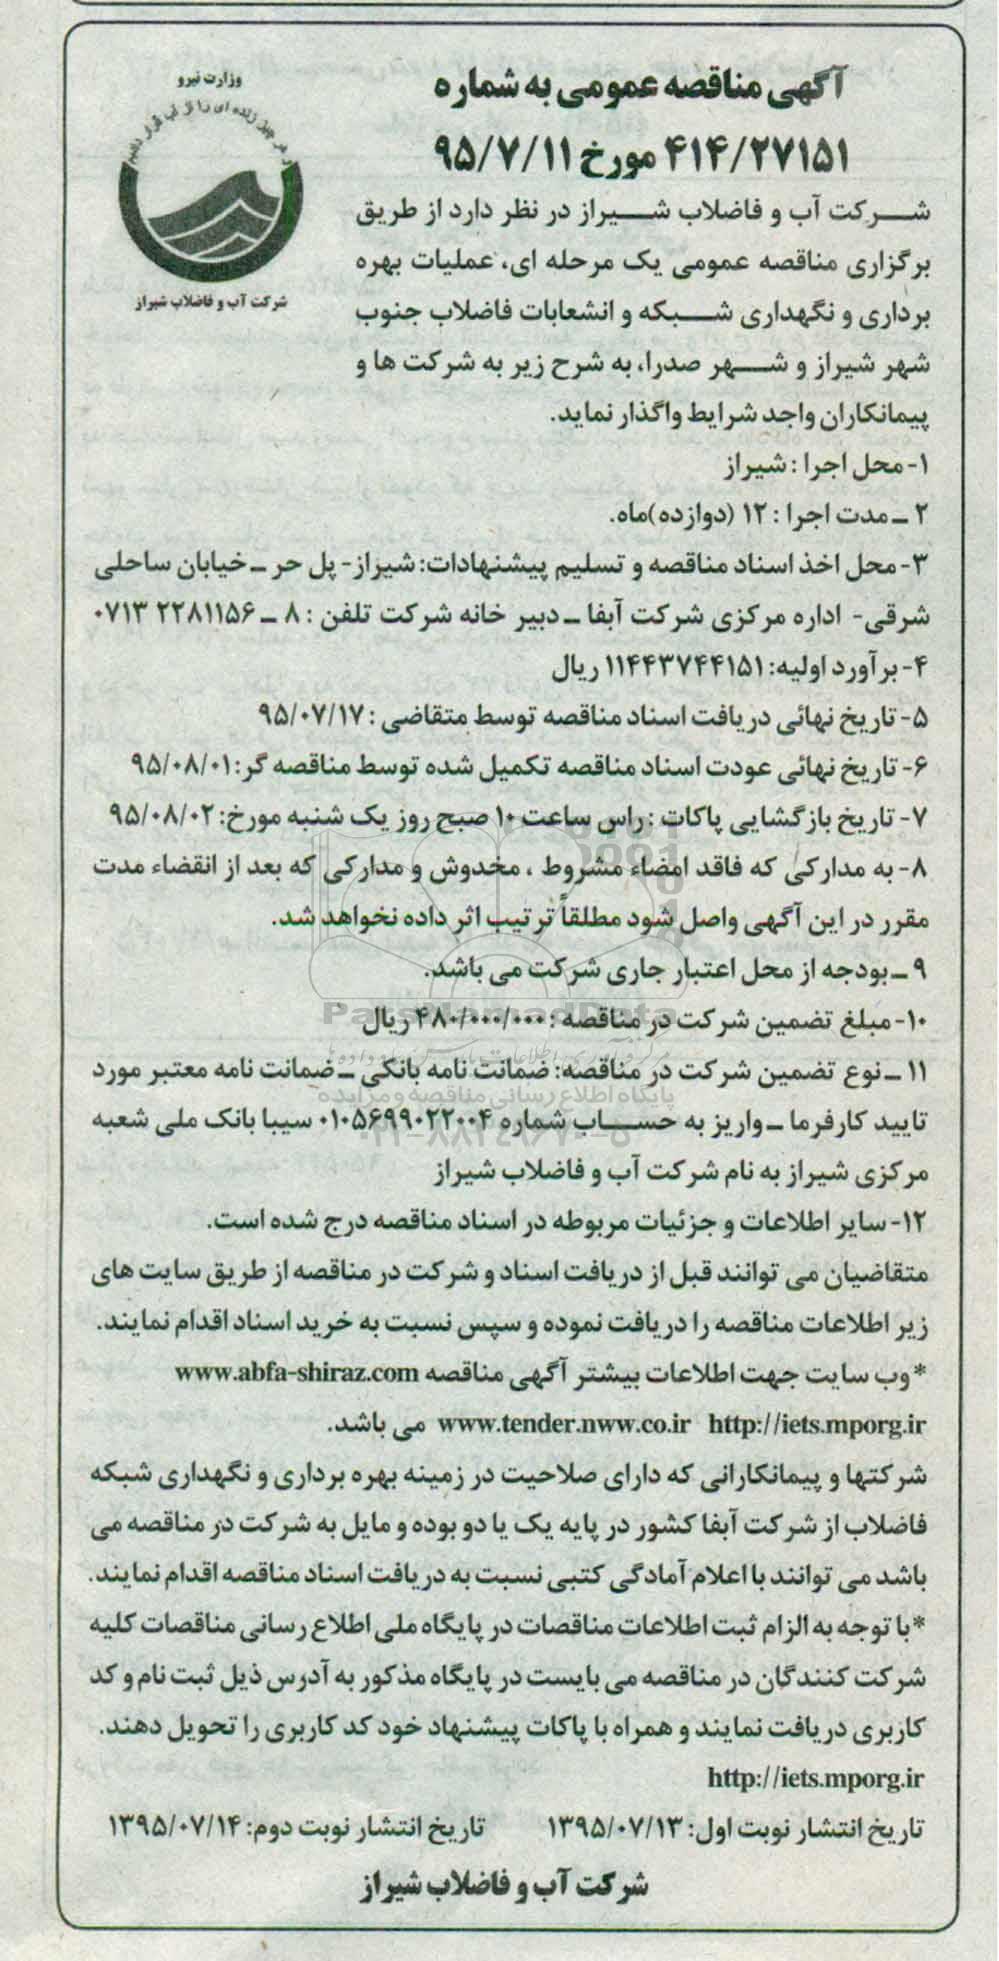 آگهی مناقصه عمومی به شماره
۴۱۴/۲۷۱۵۱ مورخ ۹۵/۷/۱۱
وزارت نیرو
و هر چیز زنده ای را از آب قرار دادیم
شرکت آب و فاضلاب شیراز
شرکت آب و فاضلاب شیراز در نظر دارد از طریق
برگزاری مناقصه عمومی یک مرحله ای، عملیات بهره
برداری و نگهداری شبکه و انشعابات فاضلاب جنوب
شهر شیراز و شهر صدرا، به شرح زیر به شرکت ها و
پیمانکاران واجد شرایط واگذار نماید.
۱- محل اجرا : شیراز
۲ ـ مدت اجرا : ۱۲ (دوازده)ماه.
۳- محل اخذ اسناد مناقصه و تسلیم پیشنهادات: شیراز- پل حر ـ خیابان ساحلی
شرقی- اداره مرکزی شرکت آبفا ـ دبیر خانه شرکت تلفن : ۸ ـ ۲۲۸۱۱۵۶ ۰۷۱۳
۴- برآورد اولیه: ۱۱۴۴۳۷۴۴۱۵۱ ریال
۵- تاریخ نهائی دریافت اسناد مناقصه توسط متقاضی : ۹۵/۰۷/۱۷
۶- تاریخ نهائی عودت اسناد مناقصه تکمیل شده توسط مناقصه گر: ۹۵/۰۸/۰۱
۷- تاریخ بازگشایی پاکات : راس ساعت ۱۰ صبح روز یک شنبه مورخ: ۹۵/۰۸/۰۲
۸- به مدارکی که فاقد امضاء مشروط ، مخدوش و مدارکی که بعد از انقضاء مدت
مقرر در این آگهی واصل شود مطلقاً ترتیب اثر داده نخواهد شد.
۹ ـ بودجه از محل اعتبار جاری شرکت می باشد.
۱۰- مبلغ تضمین شرکت در مناقصه : ۴۸۰/۰۰۰/۰۰۰ ریال
ParsNamadData
پایگاه اطلاع رسانی مناقصه و مزایده
۱۱ ـ نوع تضمین شرکت در مناقصه: ضمانت نامه بانکی ـ ضمانت نامه معتبر مورد
تایید کارفرما ـ واریز به حساب شماره ۰۱۰۵۶۹۹۰۲۲۰۰۴ سیبا بانک ملی شعبه
مرکزی شیراز به نام شرکت آب و فاضلاب شیراز
۱۲- سایر اطلاعات و جزئیات مربوطه در اسناد مناقصه درج شده است.
متقاضیان می توانند قبل از دریافت اسناد و شرکت در مناقصه از طریق سایت های
زیر اطلاعات مناقصه را دریافت نموده و سپس نسبت به خرید اسناد اقدام نمایند.
*وب سایت جهت اطلاعات بیشتر آگهی مناقصه www.abfa-shiraz.com
http://iets.mporg.ir www.tender.nww.co.ir می باشد.
شرکتها و پیمانکارانی که دارای صلاحیت در زمینه بهره برداری و نگهداری شبکه
فاضلاب از شرکت آبفا کشور در پایه یک یا دو بوده و مایل به شرکت در مناقصه می
باشد می توانند با اعلام آمادگی کتبی نسبت به دریافت اسناد مناقصه اقدام نمایند.
*با توجه به الزام ثبت اطلاعات مناقصات در پایگاه ملی اطلاع رسانی مناقصات کلیه
شرکت کنندگان در مناقصه می بایست در پایگاه مذکور به آدرس ذیل ثبت نام و کد
کاربری دریافت نمایند و همراه با پاکات پیشنهاد خود کد کاربری را تحویل دهند.
http://iets.mporg.ir
تاریخ انتشار نوبت اول: ۱۳۹۵/۰۷/۱۳ تاریخ انتشار نوبت دوم: ۱۳۹۵/۰۷/۱۴
شرکت آب و فاضلاب شیراز